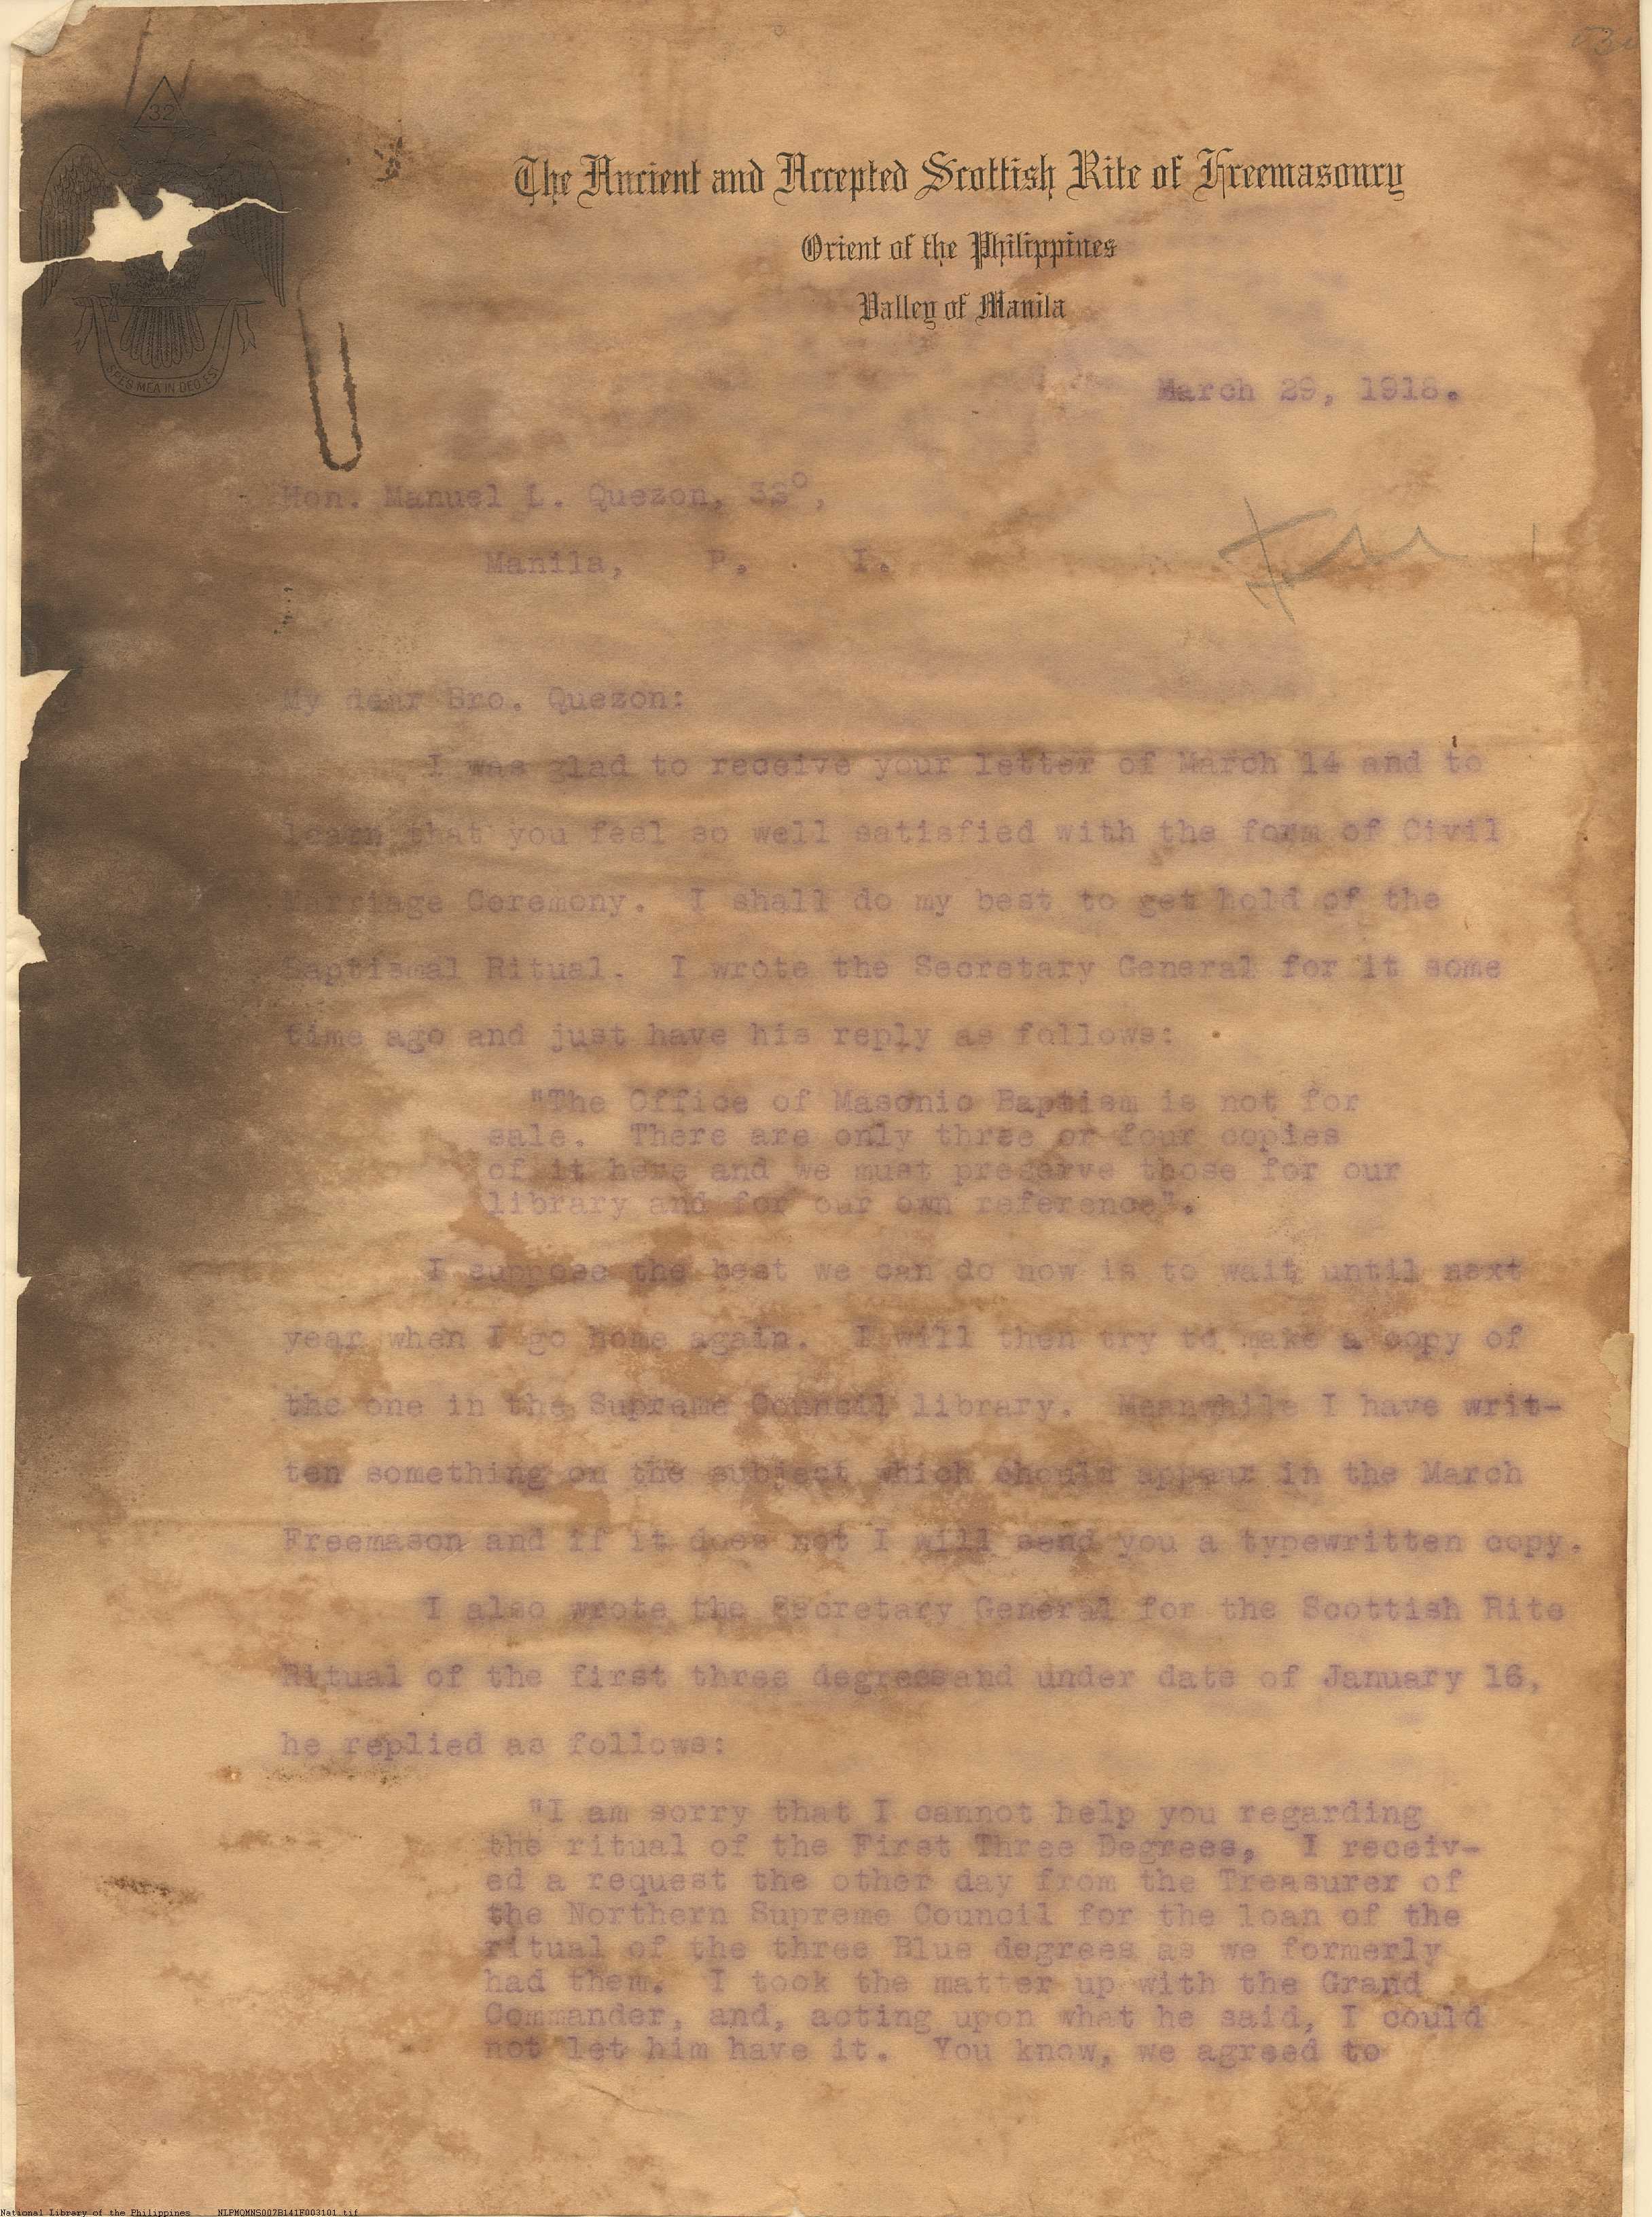 32
SPES MEA IN DEO EST
The Ancient and Accepted Scottish Rite of Freemasonry
Orient of the Philippines
Valley of Manila
March 29, 1918.
Hon. Manuel L. Quezon, 32°,
Manila, P. I.
My dear Bro. Quezon:
I was glad to receive your letter of March 14 and to
learn that you feel so well satisfied with the form of Civil
Marriage Ceremony. I shall do my best to get hold of the
Baptismal Ritual. I wrote the Secretary General for it some
time ago and just have his reply as follows:
"The Office of Masonic Baptism is not for
sale. There are only three or four copies
of it here and we must preserve those for our
library and for our own reference".
I suppose the best we can do now is to wait until next
year when I go home again. I will then try to make a copy of
the one in the Supreme Council library. Meanwhile I have writ-
ten something on the subject which should appear in the March
Freemason and if it does not I will send you a typewritten copy.
I also wrote the Secretary General for the Scottish Rite
Ritual of the first three degreesand under date of January 16,
he replied as follows:
"I am sorry that I cannot help you regarding
the ritual of the First Three Degrees, I receiv-
ed a request the other day from the Treasurer of
the Northern Supreme Council for the loan of the
ritual of the three Blue degrees as we formerly
had them. I took the matter up with the Grand
Commander, and, acting upon what he said, I could
not let him have it. You know, we agreed to
National Library of the Philippines NLPMQMNS007B141F003101.tif